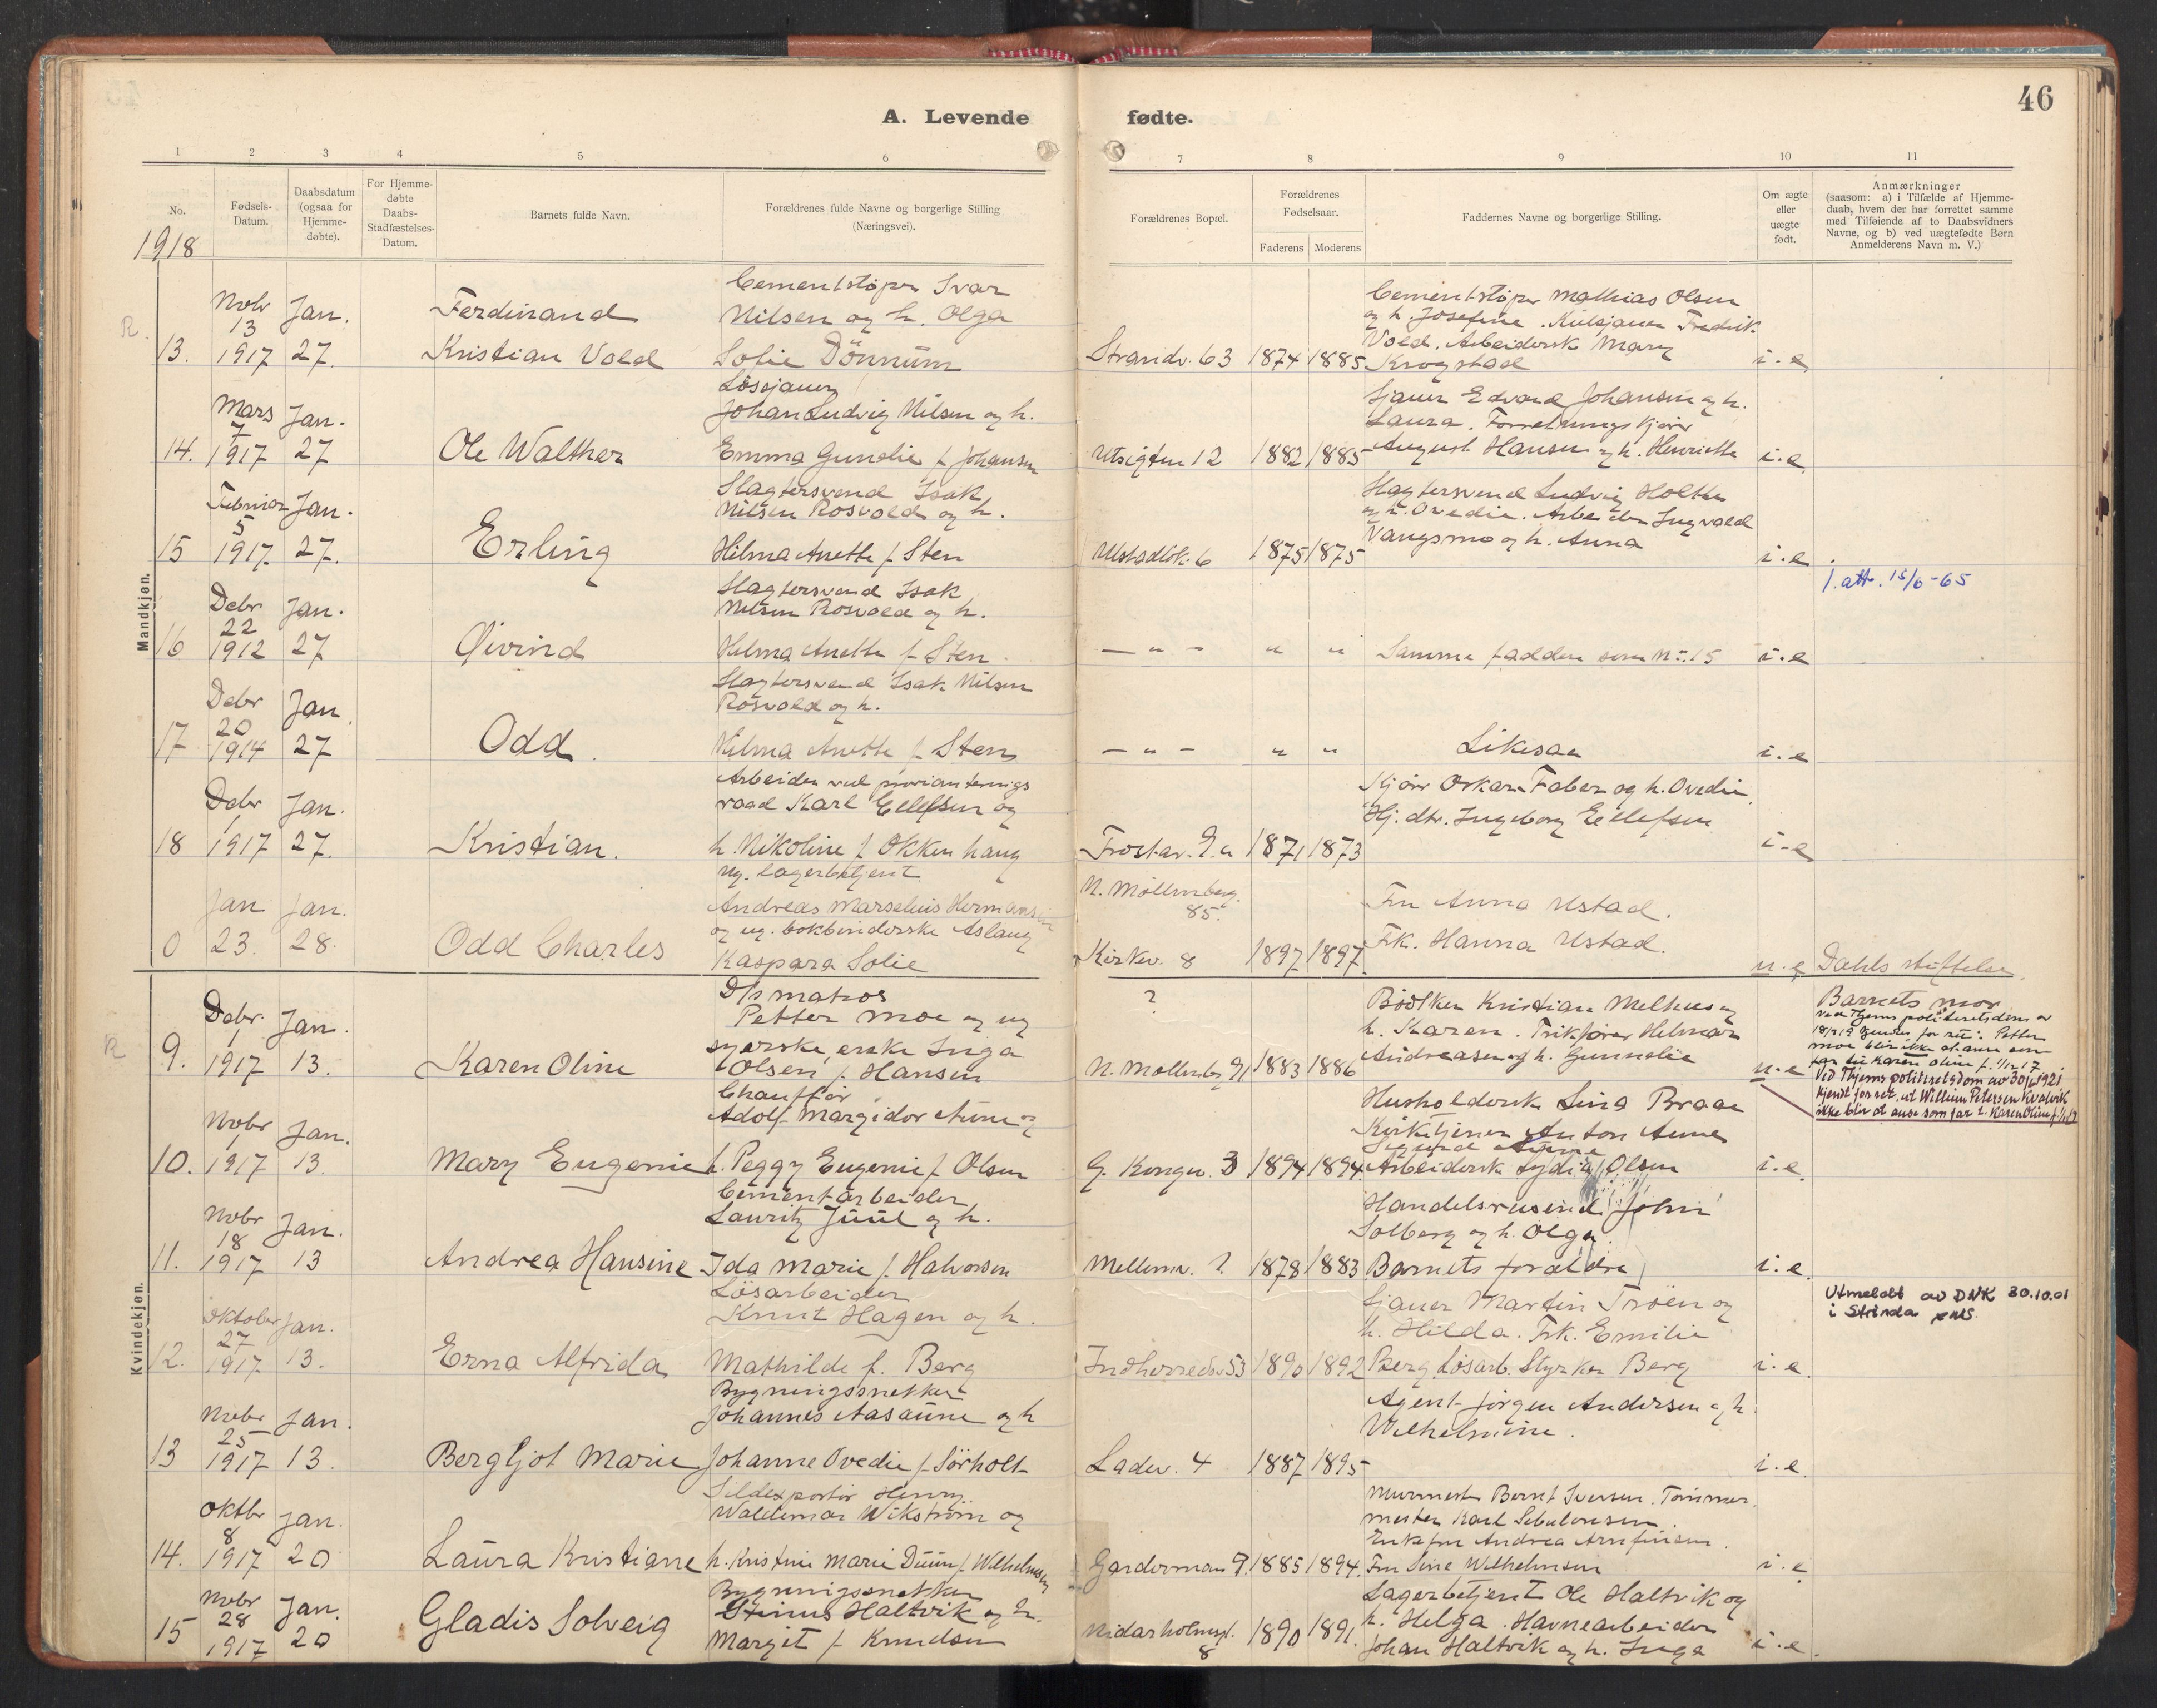 46
A. Levende fødte.
1 2 3 4 5 6 7 8 9 10 11
No.
Fødsels-
Datum.
Daabsdatum
(ogsaa for
Hjemme-
døbte).
For Hjemme-
døbte
Daabs-
Stadfæstelses-
Datum.
Barnets fulde Navn.
Forældrenes fulde Navne og borgerlige Stilling
(Næringsvei).
Forældrenes Bopæl.
Forældrenes
Fødselsaar.
Faderens Moderens
Faddernes Navne og borgerlige Stilling.
Om ægte
eller
uægte
født.
Anmærkninger
(saasom: a) i Tilfælde af Hjemme-
daab, hvem der har forrettet samme
med Tilføiende af to Daabsvidners
Navne, og b) ved uægtefødte Børn
Anmelderens Navn m. V.)
1918
Mandkjøn.
R.
13.
Nobr
13
1917
Jan.
27.
Ferdinand
Kristian Vold
Cementstøper Ivar
Nilsen og h. Olga
Sofie Dönnum
Strandv. 63
1874 1885
Cementstøper Mathias Olsen
og h. Josefine. Kulsjauer Fredrik
Vold. Arbeidersk Mary
Krogstad
i.e
14.
Mars
7
1917
Jan.
27
Ole Walther
Løssjauer
Johan Ludvig Nilsen og h.
Emma Gunelie f. Johansen
Utsigten 12
1882 1885
Sjauer Edvard Johansen og h.
Laura. Forretningskjører
August Hansen og h. Henriette
i.e.
15
Februar
5
1917
Jan.
27.
Erling
Slagtersvend Isak
Nilsen Rosvold og h.
Hilma Anette f. Sten
Ulstadløk. 6
1875 1875
Slagtersvend Ludvig Holthe
og h. Ovedie. Arbeider Ingvald
Vangsmo og h. Anna
i.e.
1. att. 15/6-65
16
Debr
22
1912
Jan.
27
Øivind
Slagtersvend Isak
Nilsen Rosvold og h.
Hilma Anette f. Sten
— „ — „ „
Samme faddere som Nr. 15
i.e
17
Debr
20
1914
Jan.
27
Odd.
Slagtersvend Isak Nilsen
Rosvold og h.
Hilma Anette f. Sten
— „ — „ „
Likesaa
i.e
18
Debr
1
1917
Jan.
27.
Kristian.
Arbeider ved provianterings
raad Karl Ellefsen og
h. Nikoline f. Okkenhaug
Frostav. 9.a
1871 1873
Kjører Oskar Faber og h. Ovedie.
Hj. dtr. Ingeborg Ellefsen
i.e
0
Jan
23.
Jan.
28.
Odd Charles
Ug. lagerbetjent
Andreas Marselius Hermansen
og ug. bokbinderske Aslaug
Kaspara Solie
N. Møllenberg.
85.
Kirkev. 8
1897 1897
Fru Anna Ustad.
Frk. Hanna Ustad.
u.e.
Dahls stiftelse.
Kvindekjøn.
R
9.
Debr.
1
1917
Jan.
13.
Karen Oline
D/s matros
Petter Moe og ug
syerske, enke Inga
Olsen f. Hansen
?
N. Mollenbg 91
1883 1886
Bødker Kristian Melhus og
h. Karen. Trikfører Helmar
Andreasen og h. Gunnelie
u.e
Barnets mor
ved Thjems politiretsdom av
18/2 19 kjendes for ret: Petter
Moe blir ikke at anse som
far til Karen Oline f. 1/12 17.
Ved Thjems politiretsdom av 30/6 1921
kjendt for ret, at William Petersen Kvalvik
ikke blir at anse som far t. Karen Oline f. 1/12 17
10.
Nobr
1
1917
Jan.
13.
Mary Eugenie
Chauffør
Adolf Margidor Aune og
h. Peggy Eugenie f. Olsen
G. Kongev. 3
1894 1894
Husholdersk Lina Braae
Kirketjener Anton Aune
Sigurd Aune
Arbeidersk Lydia Olsen
i.e.
11.
Nobr
18
1917
Jan.
13
Andrea Hansine
Cementarbeider
Lauritz Juul og h.
Ida Marie f. Halvorsen
Mellemv. 2.
1878 1883
Handelsreisend. John
Solberg og h. Olga.
Barnets forældre
i.e.
12.
Oktober
27
1917
Jan.
13.
Erna Alfrida
Løsarbeider
Knut Hagen og h.
Mathilde f. Berg
Indherredsv 53
1890 1892
Sjauer Martin Trøen og
h. Hilda. Frk. Emilie
Berg. Løsarb. Styrker Berg
i.e.
Utmeldt av DNK 30.10.01
i Strinda
13
Nobr
25
1917
Jan.
13.
Bergljot Marie
Bygningssnekker
Johannes Aasaune og h
Johanne Ovedie f. Sørholt
Ladev. 4
1887 1895
Agent Jørgen Andersen og h.
Wilhelmine.
i.e.
14.
Oktbr
8
1917
Jan.
20
Laura Kristiane
Sildexportør Henry
Waldemar Wikstrøm og
h. Kristine Marie Duun f. Wilhelmsen
Gardermoen 9.
1885 1894.
Murmester Bernt Iversen. Tømmer
mester Karl Sebulonsen.
Enkefru Andrea Arnfinsen.
Fru Line Wilhelmsen
i.e
15
Nobr
28
1917
Jan.
20
Gladis Solveig
Bygningssnekker
Stinus Haltvik og h.
Margit f. Knudsen
Nidarholmsgt.
8
1890 1891.
Lagerbetjent Ole Haltvik og
h. Helga. Havnearbeider
Johan Haltvik og h. Inga
i.e.